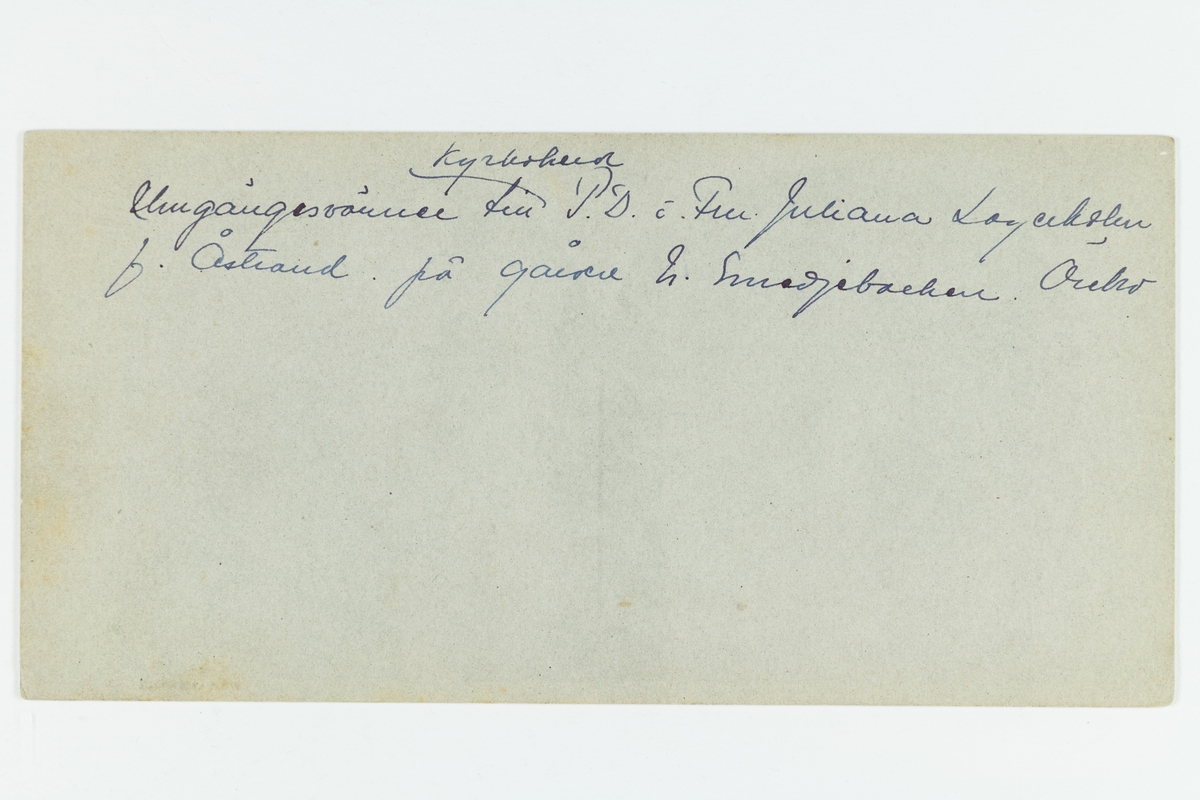 Kyrkoherd
Umgängesvänner till P.D. o. Fru. Juliana Lagerholm
f. Åstrand. på gården St. Smedjebacken. Örebro